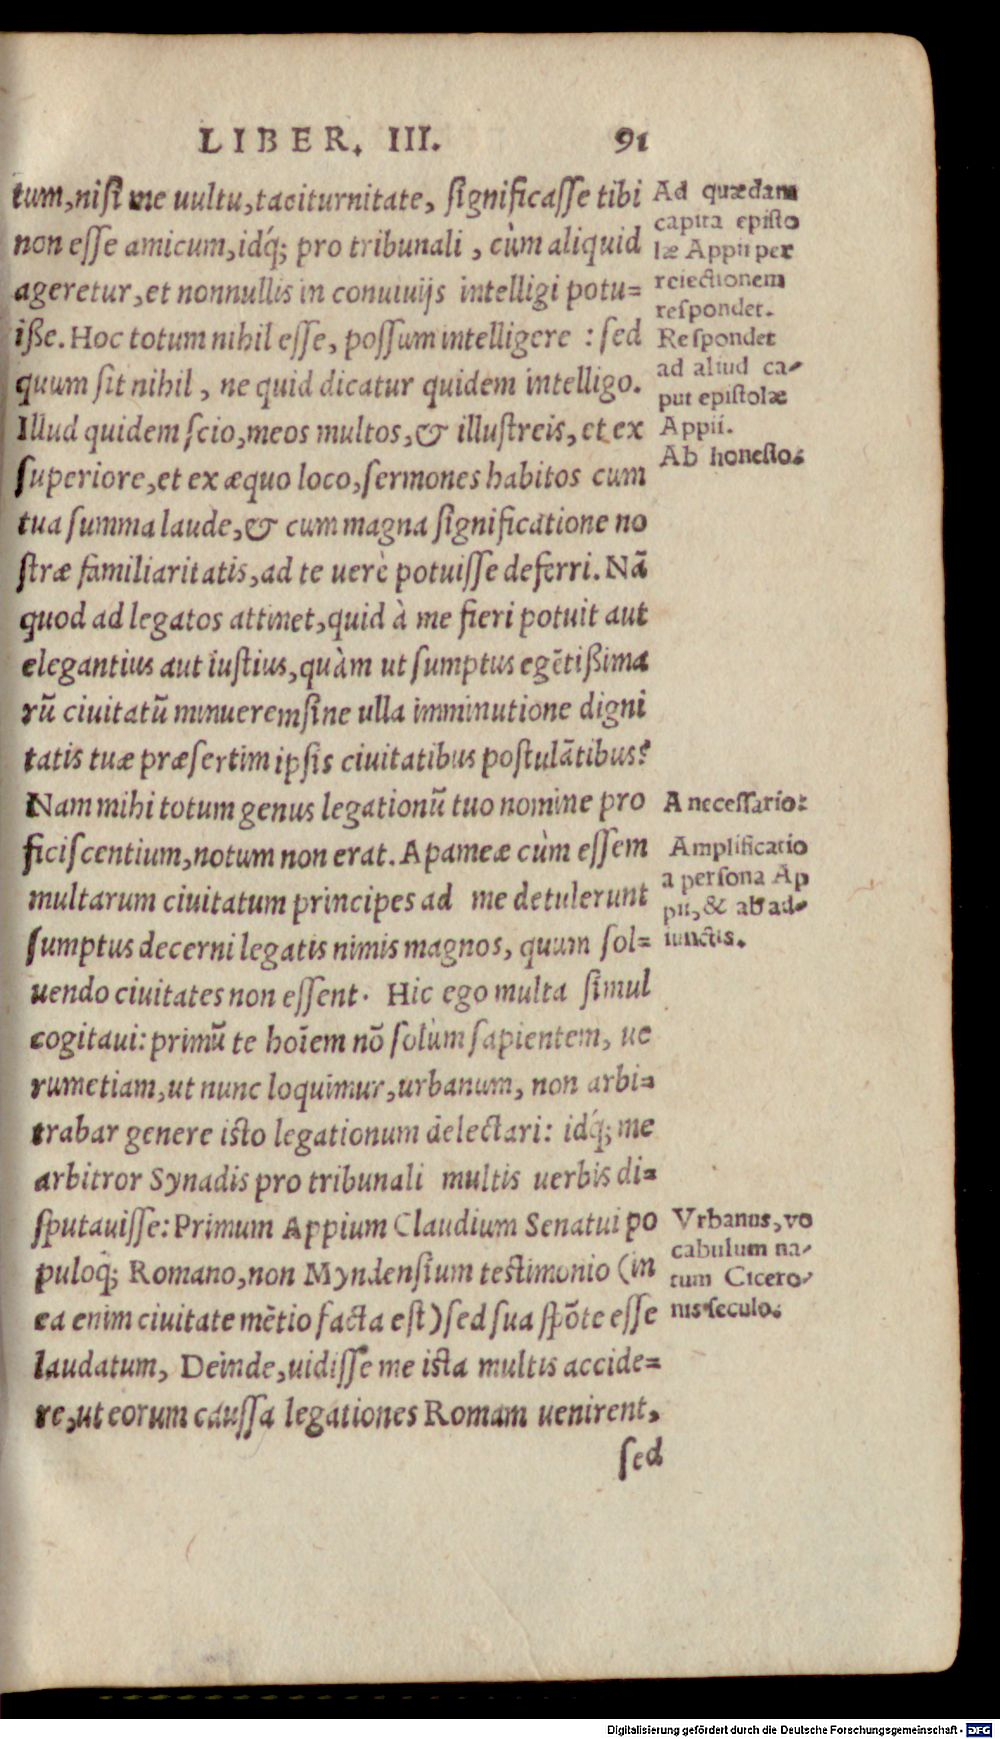 LIBER. III. 91
tum,nisi me uultu,taciturnitate, significasse tibi
non esse amicum,idq́; pro tribunali , cùm aliquid
ageretur,et nonnullis in conuiuijs intelligi potu=
iße. Hoc totum nihil esse, possum intelligere : sed
quum sit nihil , ne quid dicatur quidem intelligo.
Illud quidem scio,meos multos,& illustreis, et ex
superiore,et ex æquo loco,sermones habitos cum
tua summa laude,& cum magna significatione no
stræ familiaritatis,ad te uerè potuisse deferri. Nã
quod ad legatos attinet,quid à me fieri potuit aut
elegantius aut iustius,quàm ut sumptus egẽtißima
rũ ciuitatũ minuerem sine ulla imminutione digni
tatis tuæ præsertim ipsis ciuitatibus postulãtibus?
Nam mihi totum genus legationũ tuo nomine pro
ficiscentium,notum non erat. Apameæ cùm essem
multarum ciuitatum principes ad me detulerunt
sumptus decerni legatis nimis magnos, quum sol=
uendo ciuitates non essent. Hic ego multa simul
cogitaui: primũ te hoĩem nõ solùm sapientem, ue
rumetiam,ut nunc loquimur,urbanum, non arbi=
trabar genere isto legationum delectari: idq́; me
arbitror Synadis pro tribunali multis uerbis di=
sputauisse: Primum Appium Claudium Senatui po
puloq́; Romano,non Myndensium testimonio (in
ea enim ciuitate mẽtio facta est) sed sua spõte esse
laudatum, Deinde,uidisse me ista multis accide=
re,ut eorum caussa legationes Romam uenirent,
sed
Ad quædam
capita episto
læ Appii per
reiectionem
respondet.
Respondet
ad aliud ca-
put epistolæ
Appii.
Ab honesto.
A necessario:
Amplificatio
a persona Ap
pii,& ab ad-
iunctis.
Vrbanus, vo
cabulum na-
tum Cicero-
nis seculo.
Digitalisierung gefördert durch die Deutsche Forschungsgemeinschaft - DFG